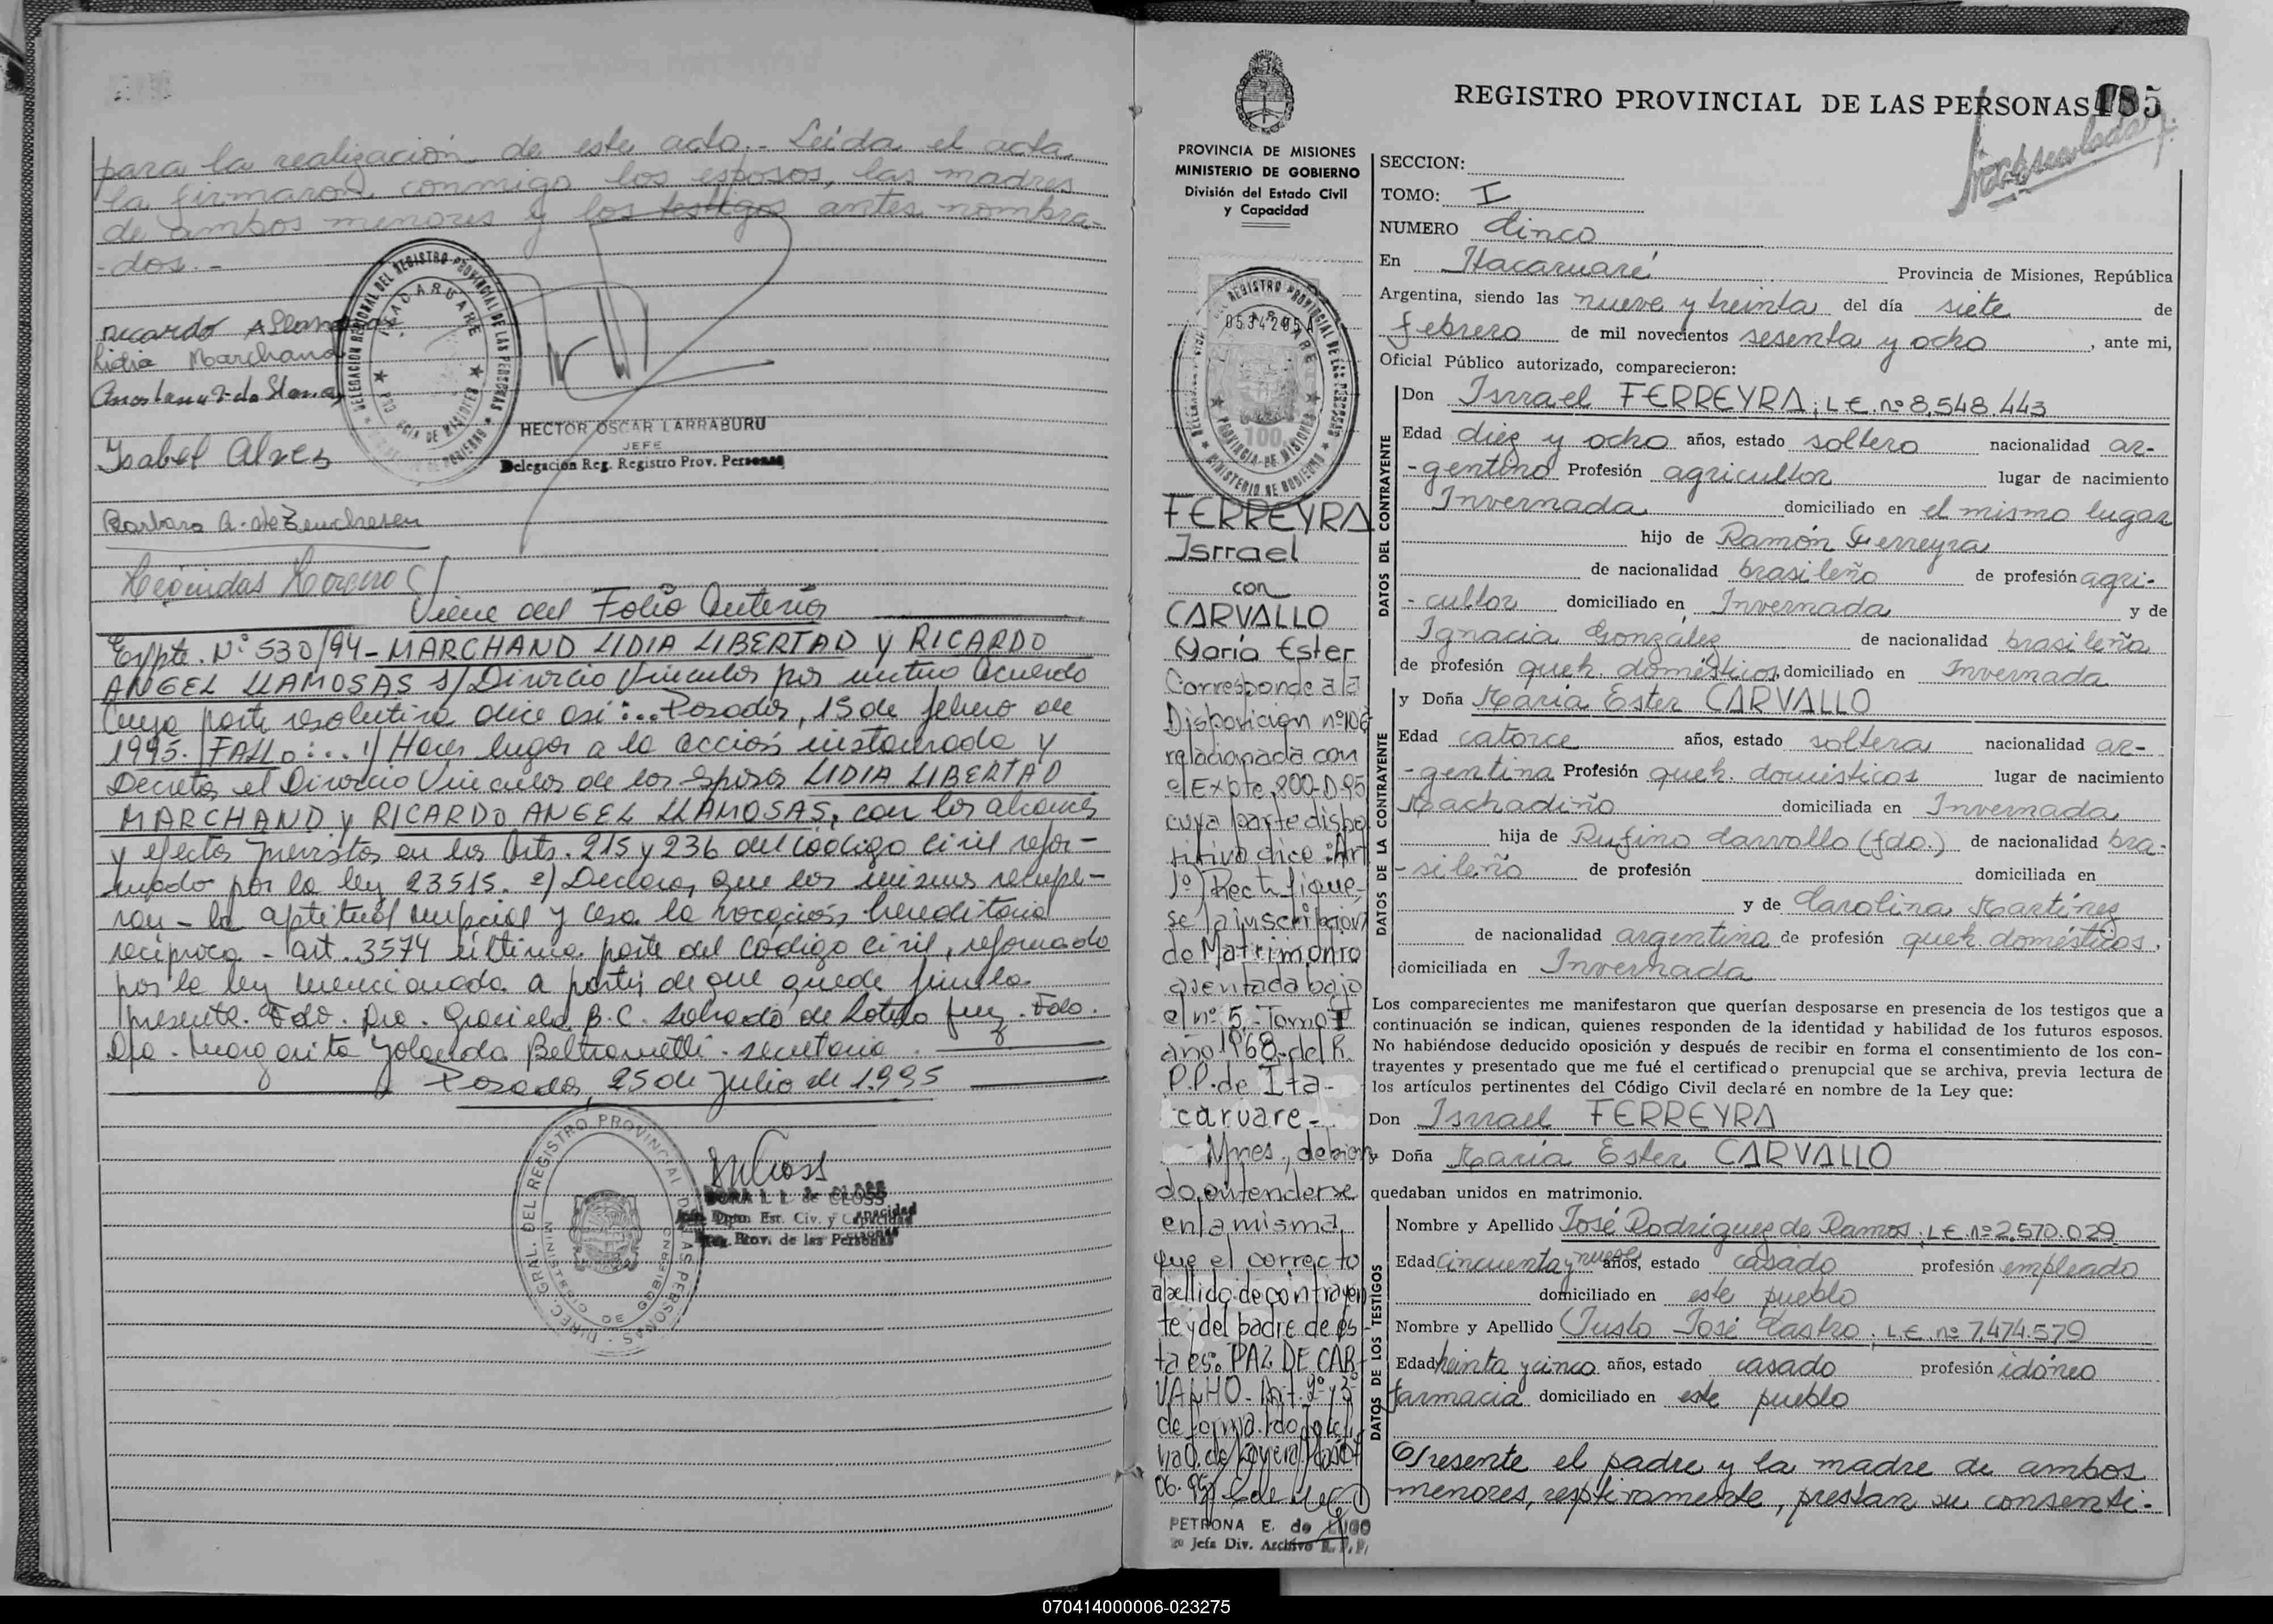 para la realización de este acto.- Leída el acta
la firmaron conmigo los esposos, las madres
de ambos menores y los testigos antes nombra-
-dos.-
DELEGACION REGIONAL DEL REGISTRO PROVINCIAL DE LAS PERSONAS
ITACARUARE
Ricardo
Lidia Marchand
HECTOR OSCAR LARRABURU
JEFE
Delegación Reg. Registro Prov. Personas
Isabel Alves
Barbara
Leónidas Moreno
Viene del Folio Anterior
Expte. Nº 530/94 - MARCHAND LIDIA LIBERTAD Y RICARDO
ANGEL LLAMOSAS S/ Divorcio Vincular por mutuo Acuerdo
Cuya parte resolutiva dice así:... Posadas, 15 de febrero de
1995. FALLO:... 1) Hacer lugar a la acción instaurada y
Decretar el Divorcio Vincular de los esposos LIDIA LIBERTAD
MARCHAND y RICARDO ANGEL LLAMOSAS, con los alcances
y efectos previstos en los Arts. 215 y 236 del Código Civil refor-
mado por la ley 23515. 2) Declarar, que los mismos recupe-
ran - la aptitud nupcial y cesa la vocación hereditaria
recíproca - art. 3574 última parte del Código Civil, reformado
por la ley mencionada a partir de que quede firme la
presente. Fdo. Dra. Graciela B. C. de Sotelo Juez. Fdo.
Dra. Margarita Yolanda - secretaria.
Posadas, 25 de Julio de 1.995
DIREC. GRAL. DEL REGISTRO PROVINCIAL DE LAS PERSONAS
MINISTERIO DE GOBIERNO
L. de CLOSS
Jefe Dpto. Est. Civ. y Capacidad
Reg. Prov. de las Personas
REGISTRO PROVINCIAL DE LAS PERSONAS 185
PROVINCIA DE MISIONES
MINISTERIO DE GOBIERNO
División del Estado Civil
y Capacidad
0534205A
100
FERREYRA
Isrrael
con
CARVALLO
María Ester
Corresponde a la
Disposicion nº 106
relacionada con
el Expte. 800-D-95
cuya parte dispo
sitiva dice: Art
1º) Rectifique-
se la inscripcion
de Matrimonio
asentada bajo
el nº 5 - Tomo I
año 1968 - del R.
P.P. de Ita-
caruare -
Mnes., debien
do entenderse
en la misma
que el correcto
apellido de contrayen
te y del padre de és
ta es: PAZ DE CAR
VALHO - Art. 2º y 3º
de forma. Fdo.
06-95
PETRONA E. de LUGO
Jefa Div. Archivo R.P.P.
SECCION:
TOMO: I
NUMERO Cinco
En Itacaruaré Provincia de Misiones, República
Argentina, siendo las nueve y treinta del día siete de
febrero de mil novecientos sesenta y ocho, ante mi,
Oficial Público autorizado, comparecieron:
DATOS DEL CONTRAYENTE
Don Isrrael FERREYRA; L.E. nº 8.548.443
Edad diez y ocho años, estado soltero nacionalidad ar-
-gentino Profesión agricultor lugar de nacimiento
Invernada domiciliado en el mismo lugar
hijo de Ramón Ferreyra
de nacionalidad brasileño de profesión agri-
-cultor domiciliado en Invernada y de
Ignacia González de nacionalidad brasileña
de profesión queh. domésticos, domiciliado en Invernada
DATOS DE LA CONTRAYENTE
y Doña María Ester CARVALLO
Edad catorce años, estado soltera nacionalidad ar-
-gentina Profesión queh. domésticos lugar de nacimiento
Machadiño domiciliada en Invernada
hija de Rufino Carvallo (fdo.) de nacionalidad bra-
-sileño de profesión domiciliada en
y de Carolina Martínez
de nacionalidad argentina de profesión queh. domésticos,
domiciliada en Invernada
Los comparecientes me manifestaron que querían desposarse en presencia de los testigos que a
continuación se indican, quienes responden de la identidad y habilidad de los futuros esposos.
No habiéndose deducido oposición y después de recibir en forma el consentimiento de los con-
trayentes y presentado que me fué el certificado prenupcial que se archiva, previa lectura de
los artículos pertinentes del Código Civil declaré en nombre de la Ley que:
Don Isrrael FERREYRA
y Doña María Ester CARVALLO
quedaban unidos en matrimonio.
DATOS DE LOS TESTIGOS
Nombre y Apellido José Rodríguez de Ramos; L.E. nº 2.570.029
Edad cincuenta y nueve años, estado casado profesión empleado
domiciliado en este pueblo
Nombre y Apellido Justo José Castro; L.E. nº 7.474.579
Edad treinta y cinco años, estado casado profesión idóneo
farmacia domiciliado en este pueblo
Presente el padre y la madre de ambos
menores, resptivamente, prestan su consenti-
070414000006-023275